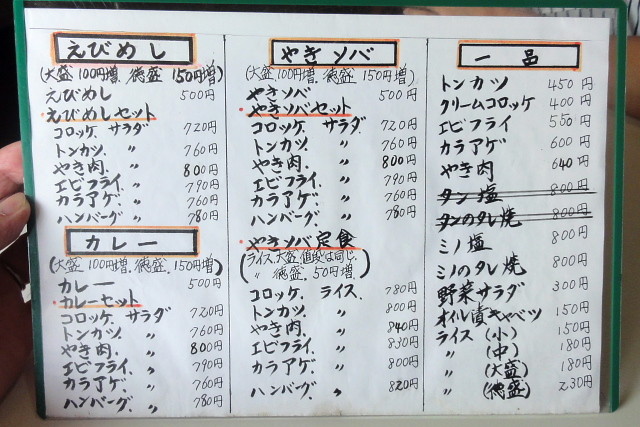 えびめし
(大盛100円増、徳盛150円増)
えびめし 500円
・えびめしセット
コロッケ. サラダ 720円
トンカツ. 〃 760円
やき肉. 〃 800円
エビフライ. 〃 790円
カラアゲ. 〃 760円
ハンバーグ. 〃 780円
カレー
(大盛100円増、徳盛150円増)
カレー 500円
・カレーセット
コロッケ サラダ 720円
トンカツ. 〃 760円
やき肉. 〃 800円
エビフライ. 〃 790円
カラアゲ. 〃 760円
ハンバーグ. 〃 780円
やきソバ
(大盛100円増、徳盛150円増)
やきソバ 500円
・やきソバセット
コロッケ サラダ 720円
トンカツ. 〃 760円
やき肉. 〃 800円
エビフライ. 〃 790円
カラアゲ. 〃 760円
ハンバーグ. 〃 780円
・やきソバ定食
(ライス、大盛、値段は同じ.
〃 徳盛、50円増)
コロッケ. ライス. 780円
トンカツ. 〃 800円
やき肉. 〃 840円
エビフライ. 〃 830円
カラアゲ. 〃 800円
ハンバーグ. 〃 820円
一品
トンカツ 450円
クリームコロッケ 400円
エビフライ 550円
カラアゲ 600円
やき肉 640円
タン塩 800円
タンのタレ焼 800円
ミノ塩 800円
ミノのタレ焼 800円
野菜サラダ 300円
オイル漬キャベツ 150円
ライス (小) 150円
〃 (中) 180円
〃 (大盛) 180円
〃 (徳盛) 230円